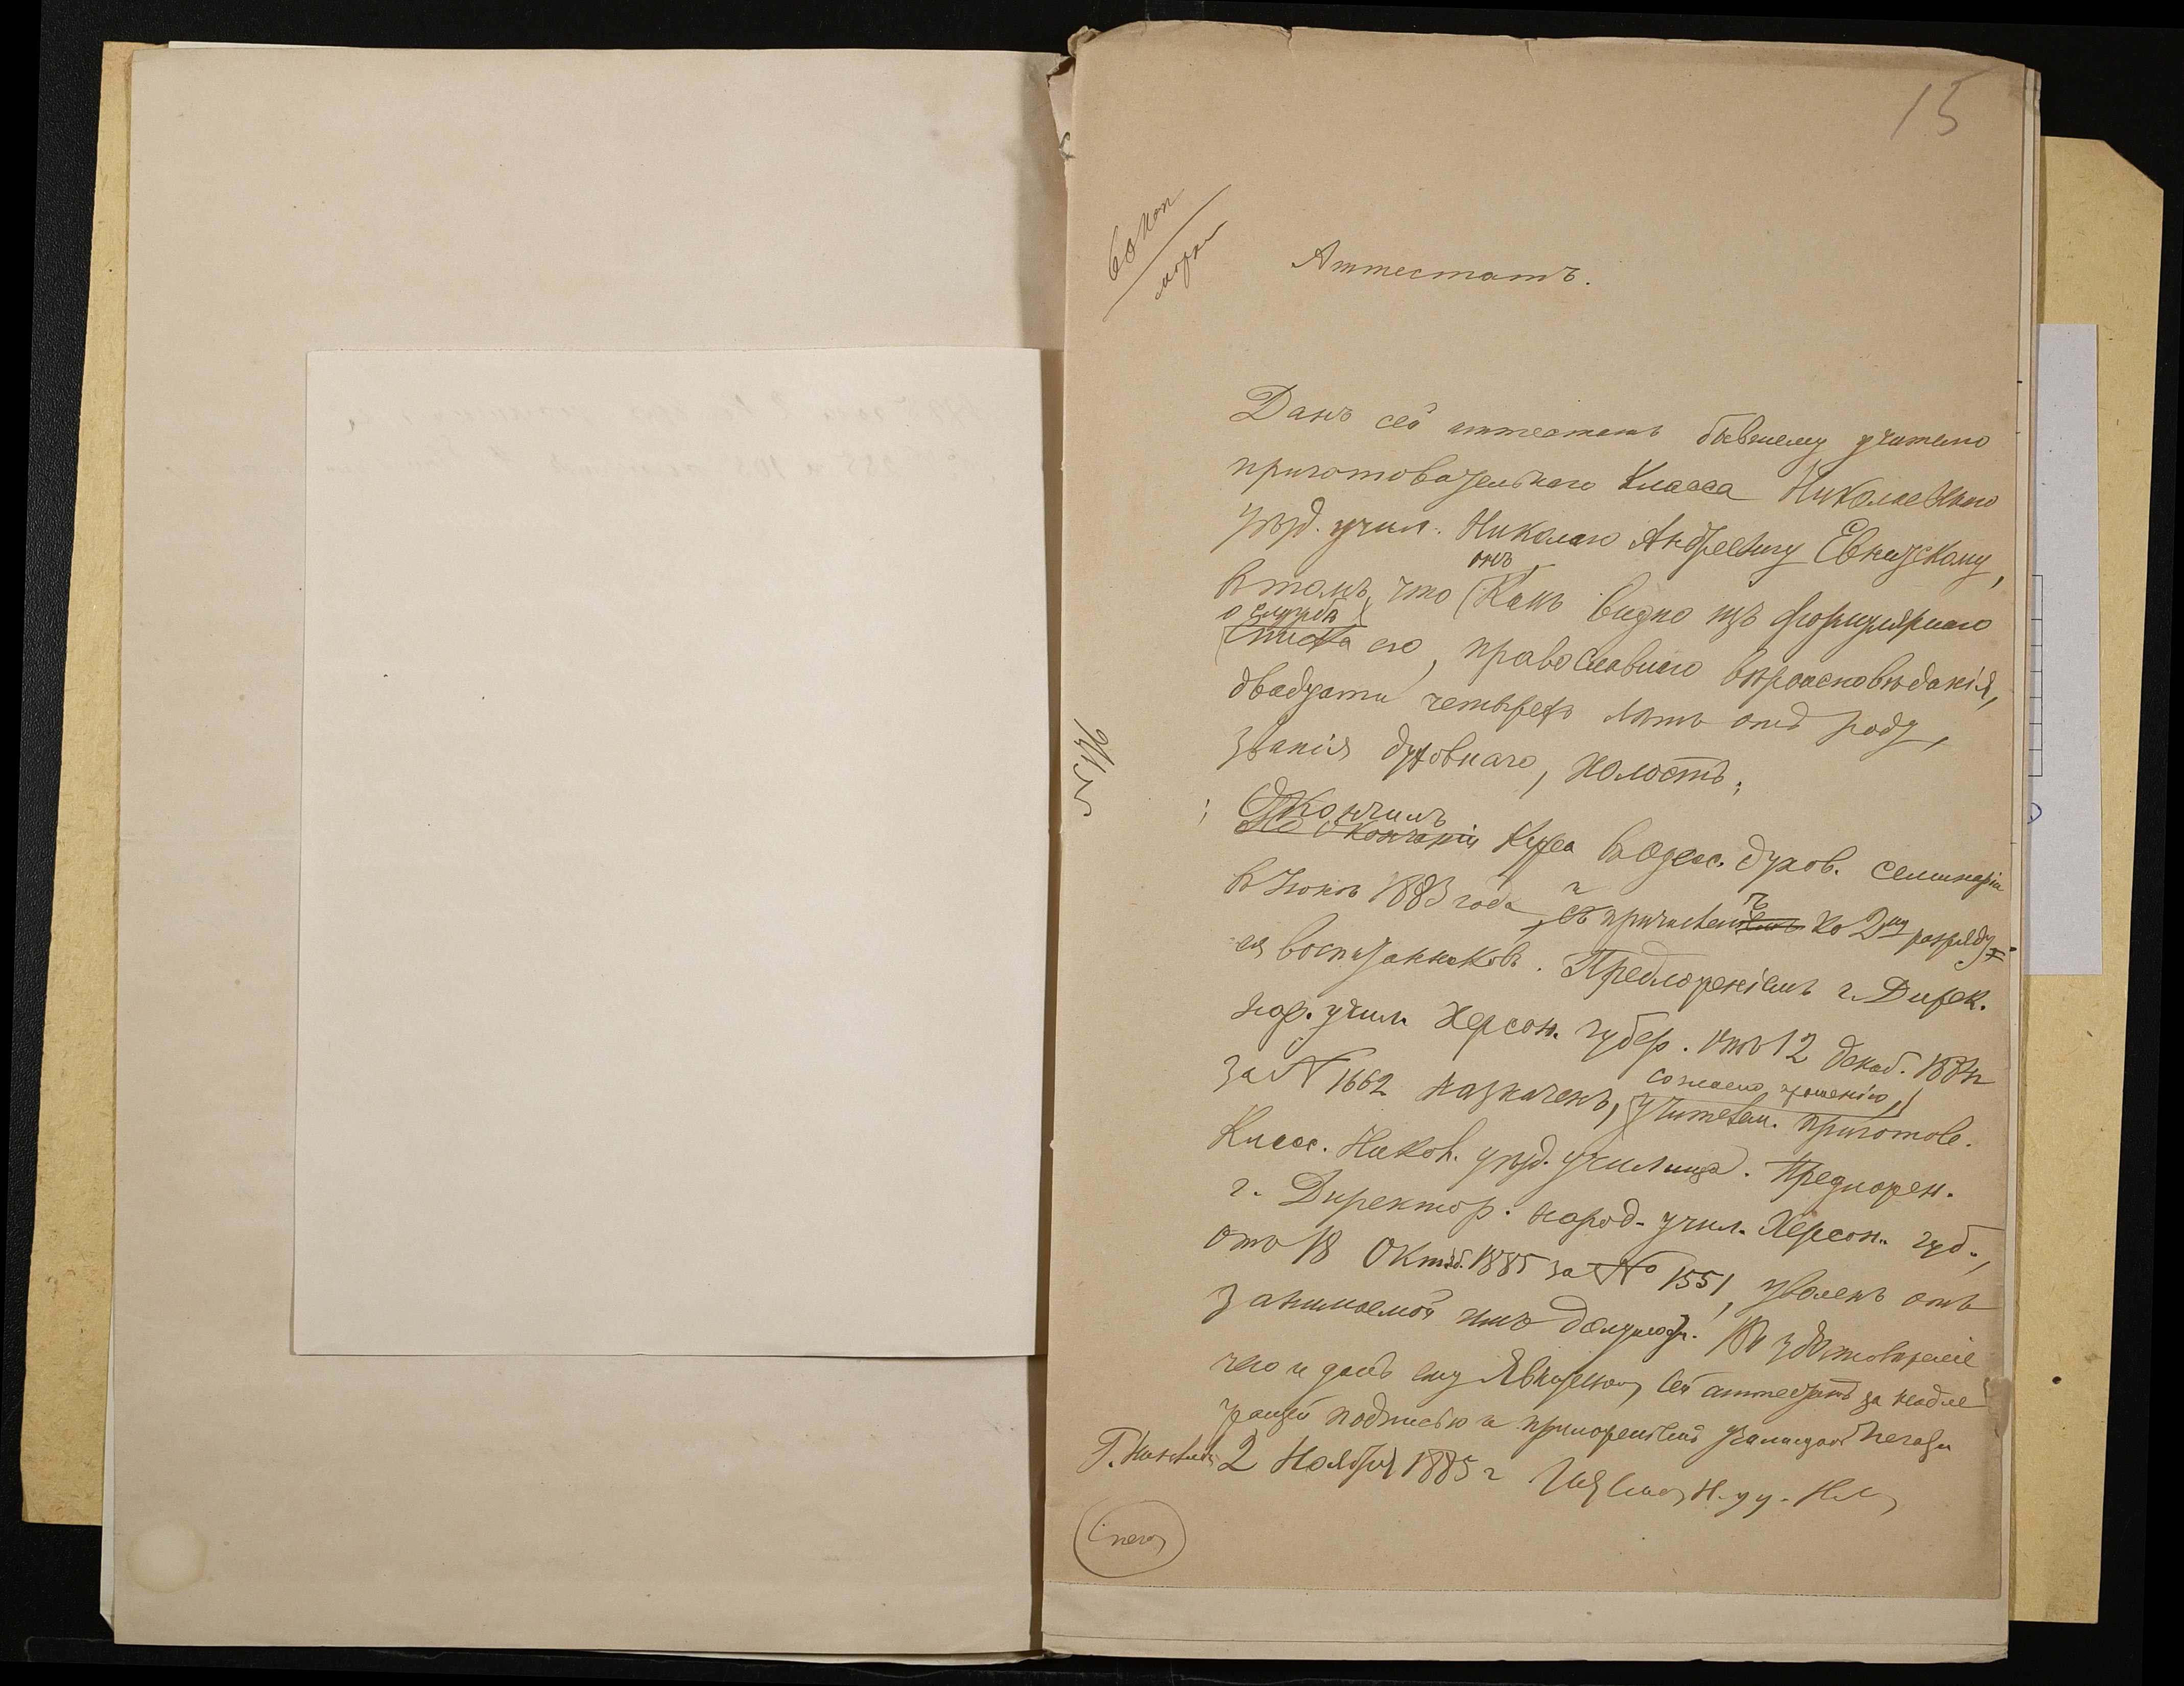 15
60 коп
марки
Аттестатъ.
Данъ сей аттестатъ бывшему учителю
приготовательнаго класса Николаевскаго
уѣзд. учил. Николаю Андреевичу Евницкому,
онъ,
въ томъ, что (какъ видно изъ формулярнаго
о службѣ
списка его, православнаго вѣроисповѣданія,
двадцати четырехъ лѣтъ отъ роду,
званія духовнаго, холостъ;
Окончилъ
По окончаніи курса въ Одесс. духов. семинаріи
въ Іюнѣ 1883 года, съ причисленъ ко 2му разряду
ея воспитанниковъ. Предложеніемъ г. Дирек.
нар. учил. Херсон. губер. отъ 12 декаб. 1884 г
согласно прошенію,
за № 1662 назначенъ, учителем. приготов.
Класс. Никол. уѣзд. училища. Предложен.
г. Директор. народ. учил. Херсон. губ.,
отъ 18 Октяб. 1885 за № 1551, уволенъ отъ
занимаемой имъ должност. Въ удостовѣреніе
чего и данъ ему Евницкому сей аттестатъ за надле
жащей подписью и приложеніемъ казенной печати
Г. Николаевъ 2 Ноября 1885 г
печа